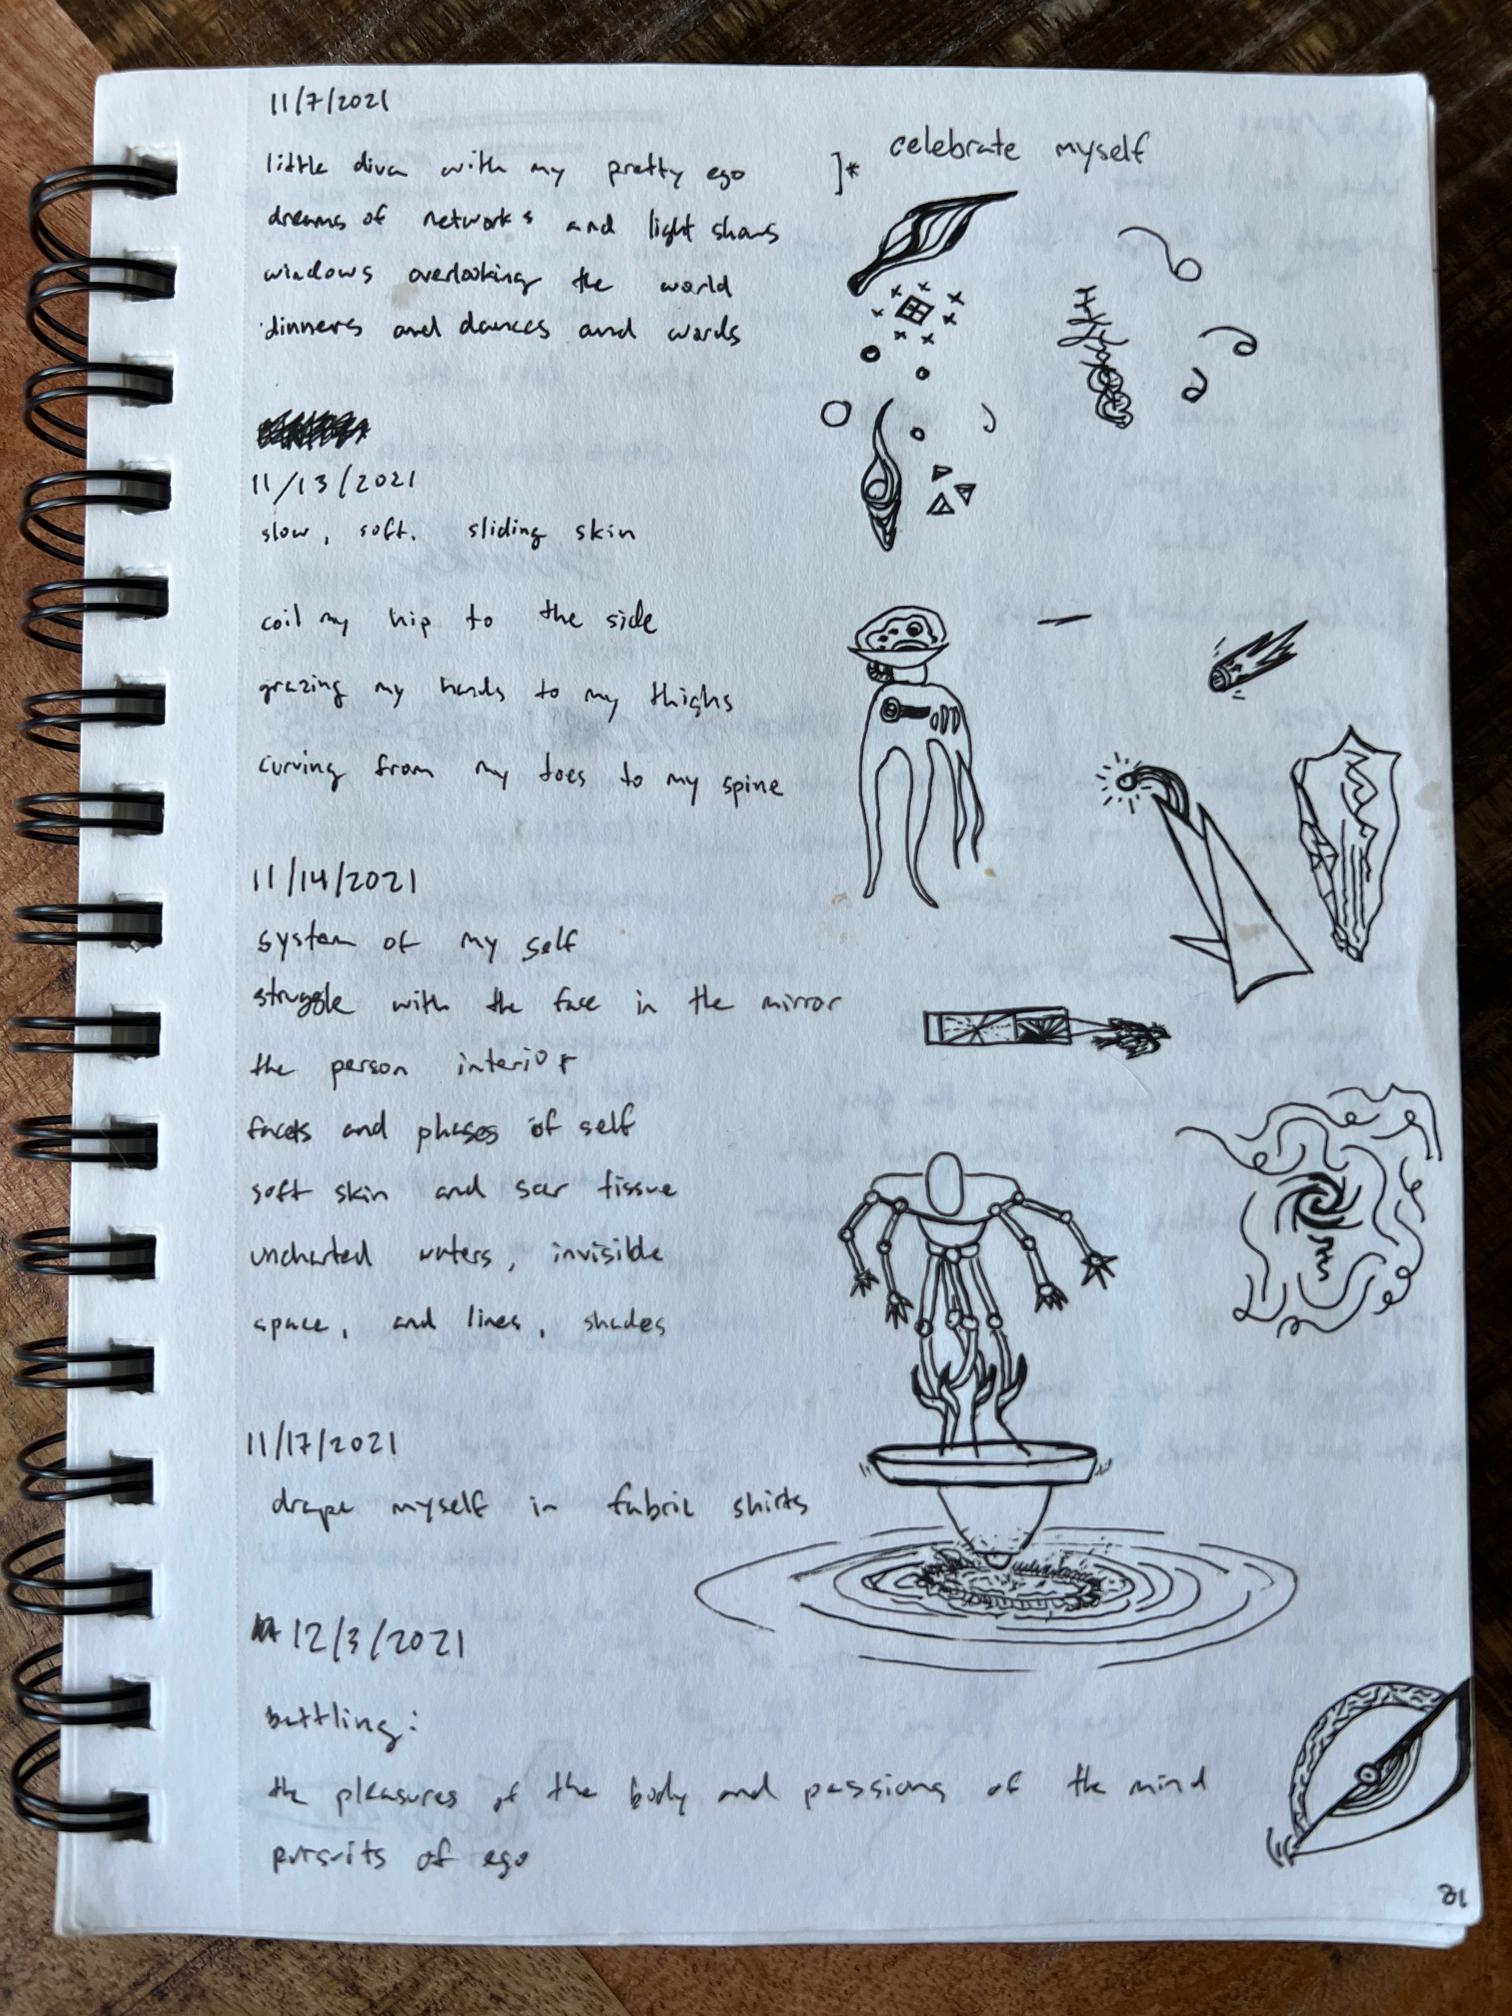 11/7/2021
little diva with my pretty ego ]* celebrate myself
dreams of networks and light shows
windows overlooking the world
dinners and dances and words
11/13/2021
slow, soft. sliding skin
coil my hip to the side
grazing my hands to my thighs
curving from my toes to my spine
11/14/2021
system of my self
struggle with the face in the mirror
the person interior
facets and phases of self
soft skin and scar tissue
uncharted waters, invisible
space, and lines, shades
11/17/2021
drape myself in fabric shirts
12/3/2021
battling:
the pleasures of the body and passions of the mind
pursuits of ego